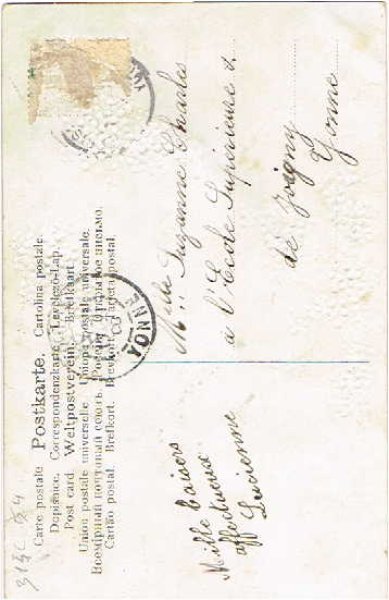 Carte postale Postkarte. Cartolina postale.
Dopisnice. Correspondenzkarte. Levelező-Lap.
Post card. Weltpostverein. Brefkaart.
Union postale universelle. Unione postale universale.
Всемірный почтовый союзъ. Россія. Открытое письмо.
Cartão postal. Brefkort. Brevkort. Tarjeta postal.
YONNE
Mille baisers
affectueux
Lucienne
Mlle Suzanne Chasles
à l'Ecole Supérieure
de Joigny
Yonne